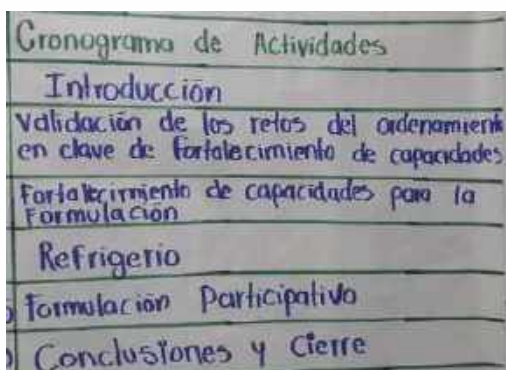 Cronograma de Actividades
Introducción
Validación de los retos del ordenamient
en clave de fortalecimiento de capacidades
Fortalecimiento de capacidades para la
Formulación
Refrigerio
Formulación Participativa
Conclusiones y Cierre